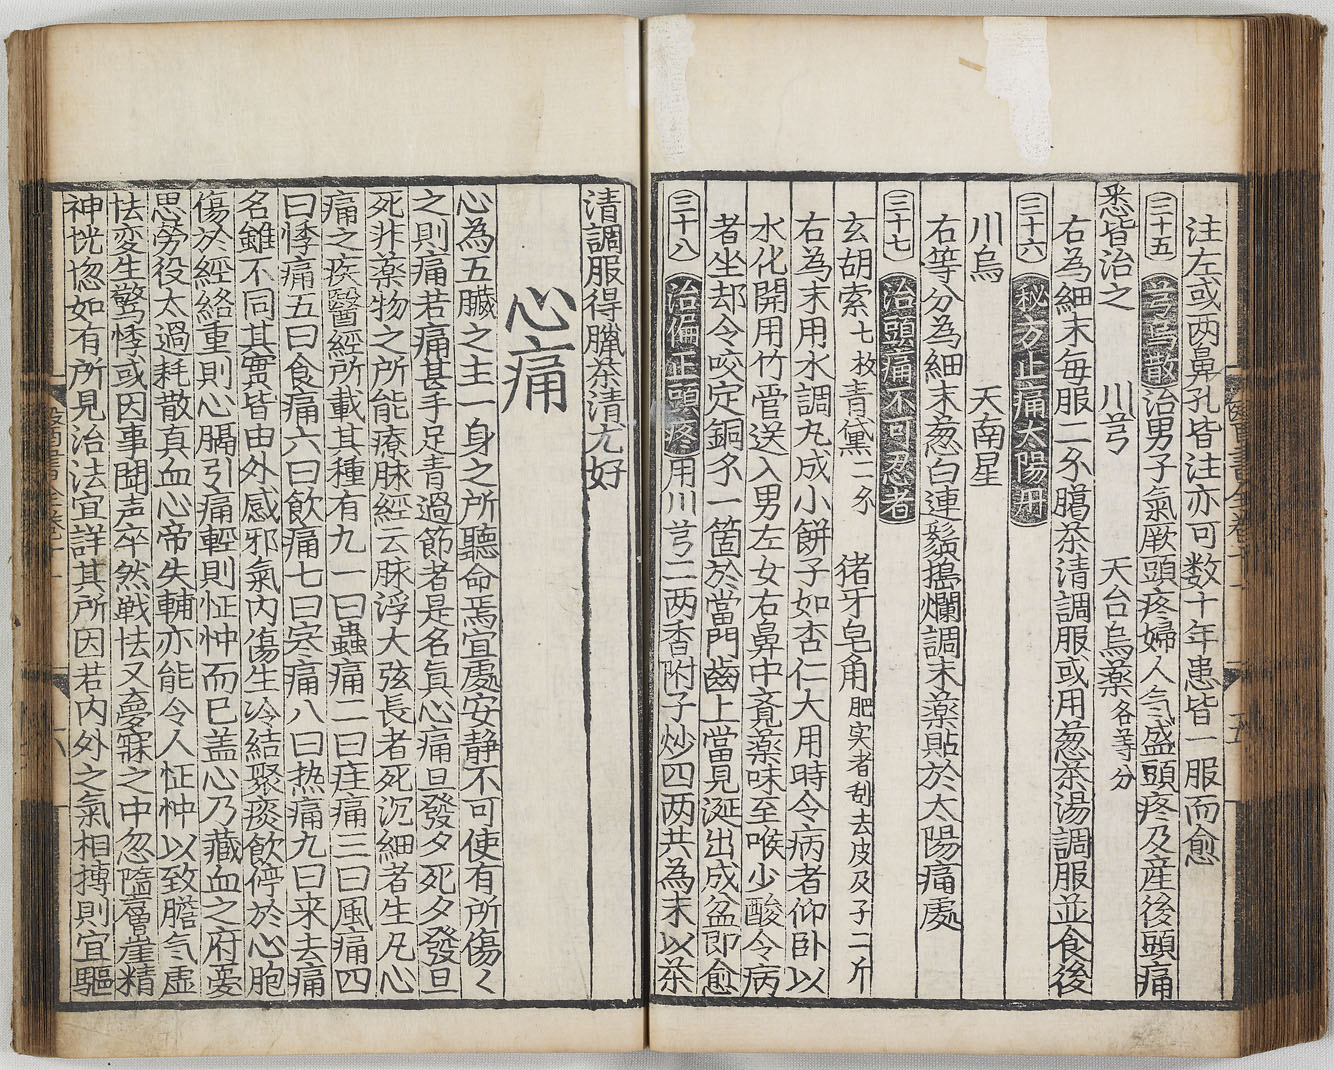 注左或两鼻孔皆注亦可数十年患皆一服而愈
三十五 芎烏散 治男子氣厥頭疼婦人气盛頭疼及産後頭痛
悉皆治之 川芎 天台烏薬各等分
右為細末毎服二分臈茶清調服或用葱茶湯調服並食後
三十六 秘方止痛太陽丹
川烏 天南星
右等分為細末葱白連鬚搗爛調末薬貼於太陽痛處
三十七 治頭痛不可忍者
玄胡索七枚 青黛二分 猪牙皂角肥实者刮去皮及子二斤
右為末用水調丸成小餅子如杏仁大用時令病者仰卧以
水化開用竹管送入男左女右鼻中覔薬味至喉少酸令病
者坐却令咬定銅分一箇於當門齒上當見涎出成盆即愈
三十八 治偏正頭疼 用川芎二两香附子炒四两共為末以茶
清調服得臘茶清尤好
心痛
心為五臓之主一身之所聽命焉宜處安静不可使有所傷〻
之則痛若痛甚手足青過節者是名真心痛旦發夕死夕發旦
死非薬物之所能療脉經云脉浮大弦長者死沉細者生凡心
痛之疾醫經所載其種有九一曰蟲痛二曰疰痛三曰風痛四
曰悸痛五曰食痛六曰飲痛七曰寒痛八曰热痛九曰来去痛
名雖不同其實皆由外感邪氣内傷生冷結聚痰飲停於心胞
傷於經絡重則心膈引痛輕則怔忡而已蓋心乃蔵血之府妄
思勞役太過耗散真血心帝失輔亦能令人怔忡以致膽气虚
怯変生驚悸或因事聞声卒然戦怯又夢寐之中忽墮層崖精
神恍惚如有所見治法宜詳其所因若内外之氣相搏則宜驅